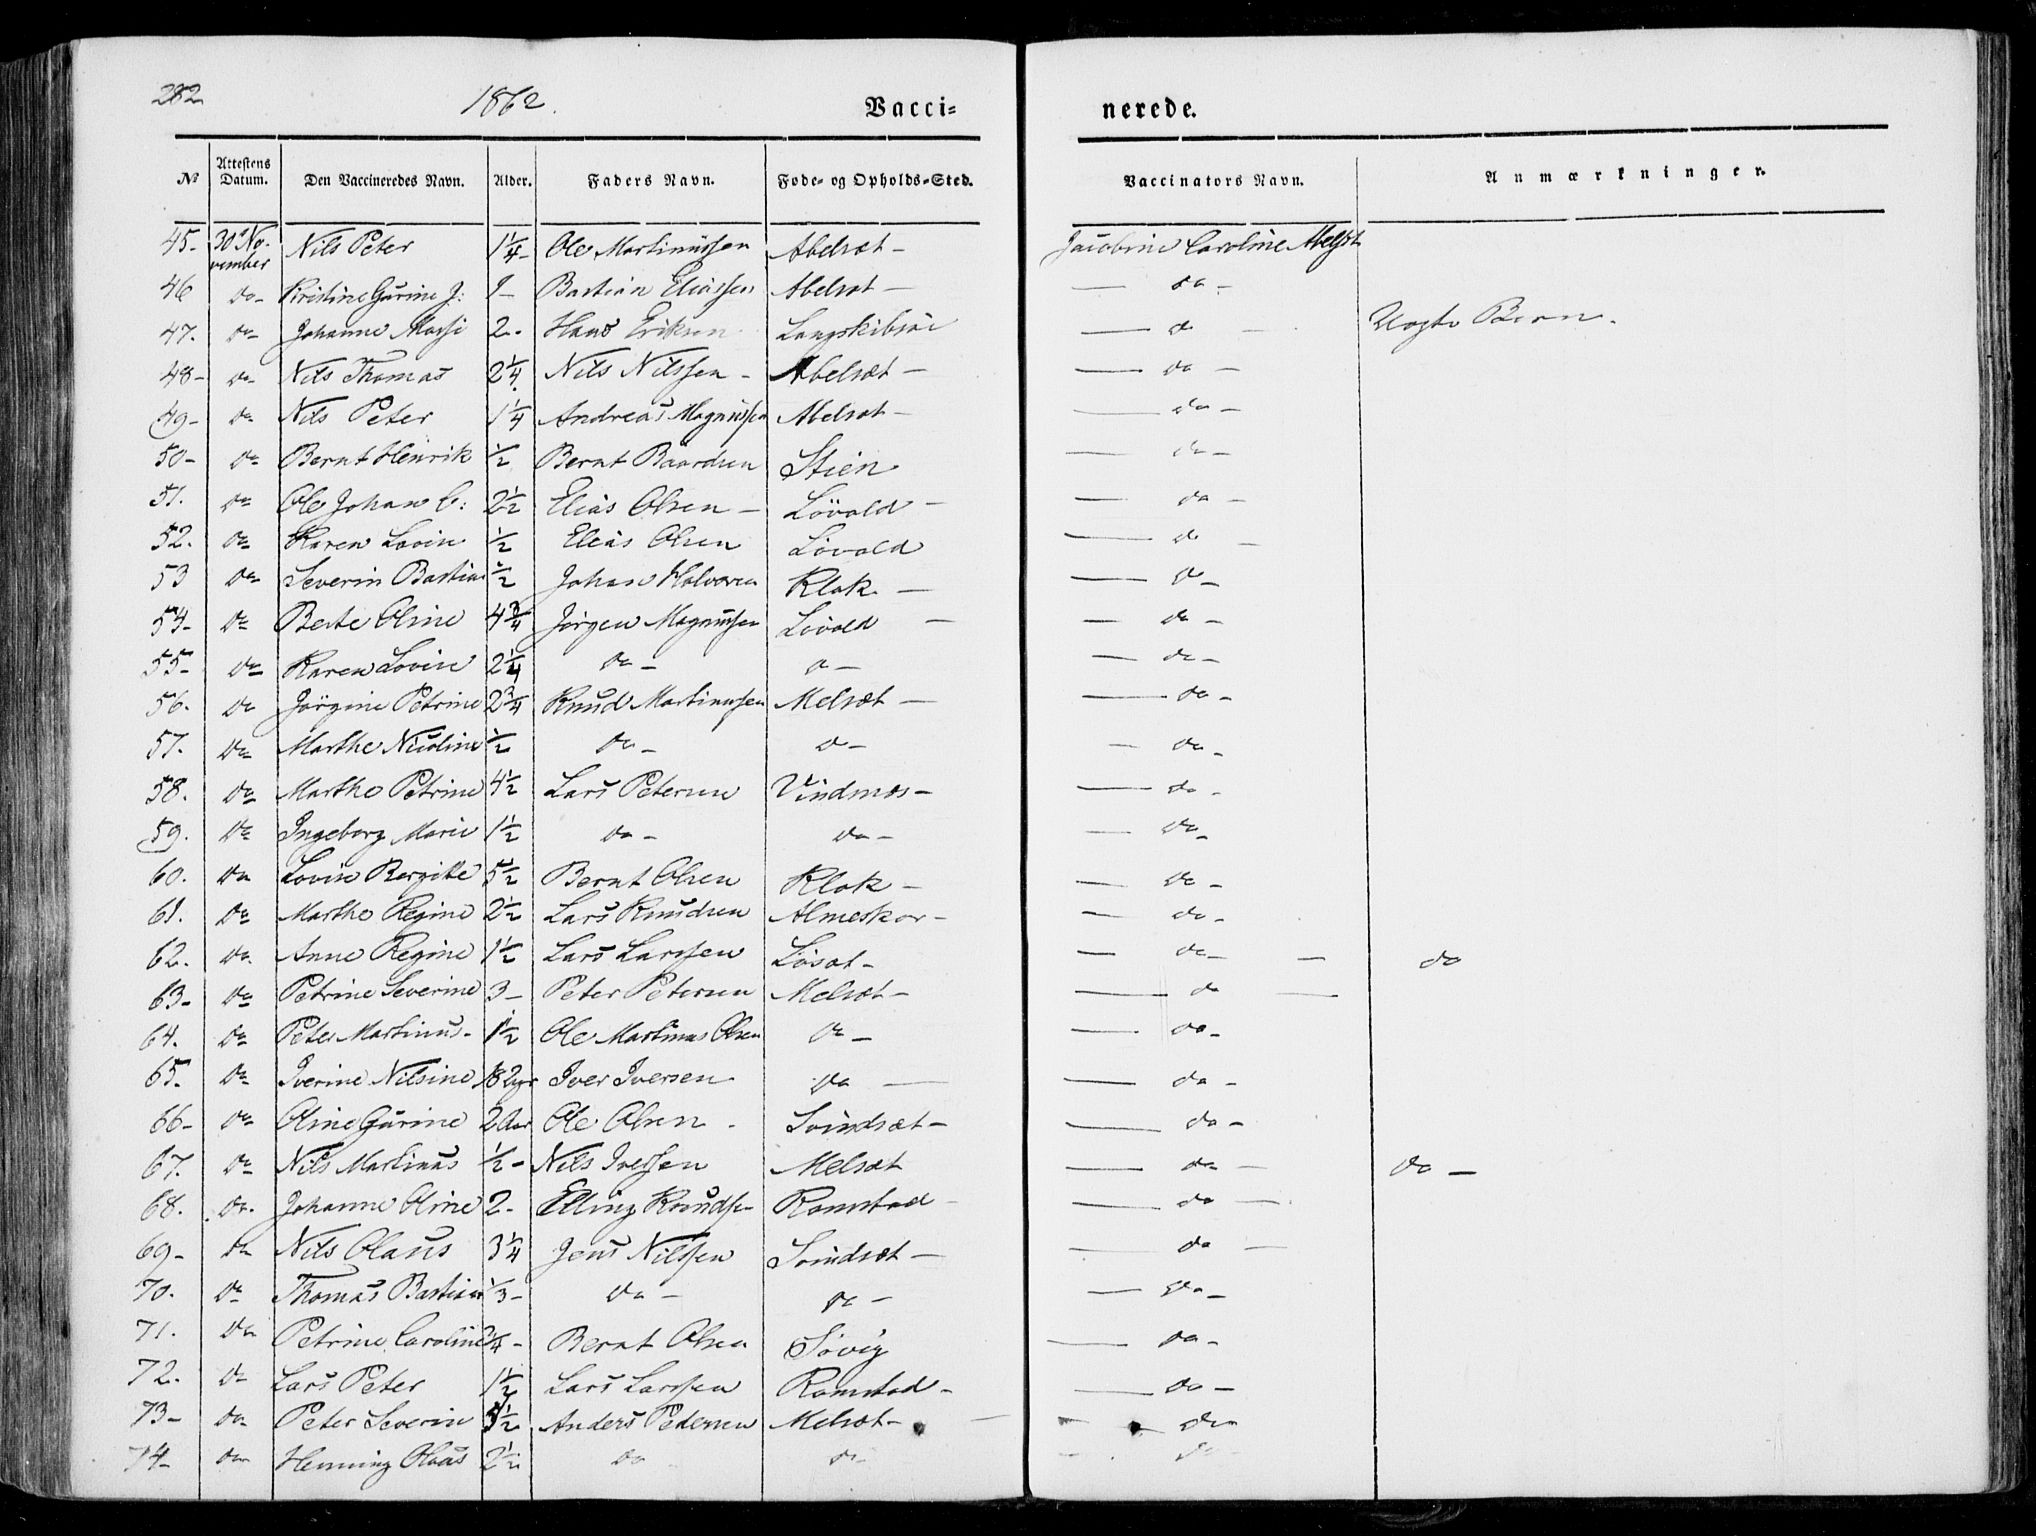 282
1862.
Vacci=
nerede.
No Attestens Datum. Den Vaccineredes Navn. Alder. Faders Navn. Føde- og Opholds-Sted. Vaccinators Navn. Anmærkninger.
45. 30 No-vember Nils Peter 1 1/4 Ole Martinussen Abelsæt - Jacobine Caroline
46 do Kristine Gurine J: Bastian Eliassen Abelsæt - do -
47. do Johanne 2. Hans Eriksen do Uægte Barn.
48 - do Nils Thomas 2 1/4 Nils Nilssen - Abelsæt - do -
49 - do Nils Peter 1 1/4 Andreas Magnussen Abelsæt - do -
50 - do Bernt Henrik 1/2 Bernt Baardsen Stien do -
51. do Ole Johan C: 2 1/2 Elias Olsen - Lövold - do -
52. do Karen Lovise 1/2 Elias Olsen Lövold do -
53 do Severin Bastian 1/2 Johan Halvorsen Klok - do -
54 - do Berte Oline 4 3/4 Jörgen Magnussen Lövold - do -
55 - do Karen Lovise 2 1/4 do - do - do -
56. do Jörgine Petrine 2 3/4 Knud Martinussen Melsæt - do -
57. do Marthe Nicoline 1/2 do - do - do -
58. do Marthe Petrine 4 1/2 Lars Petersen Vindmæs - do -
59. do Ingeborg Marie 1 1/2 do - do - do -
60. do Lovise Bergitte 5 1/2 Bernt Olsen Klok - do -
61. do Marthe Regine 2 1/2 Lars Knudsen Almeskar - do -
62. do Anne Regine 1 1/2 Lars Larssen Lösæt - do - do
63 - do Petrine Severine 3 - Peter Petersen Melsæt - do
64. do Peter Martinus - 1 1/2 Ole Martinus Olsen do - do -
65. do Iverine Nilsine Iver Iversen do - do -
66 - do Oline Gurine 2 Aar Ole Olsen - Svindsæt - do -
67. do Nils Martinus 1/2 - Nils Iversen Melsæt do - do -
68. do. Johanne Oline 2 - Elling Knudsen Ramstad - do -
69 - do Nils Olaus 3 1/4 Jens Nilssen Svindsæt - do -
70. do Thomas Bastian 1/3 - do - do - do -
71. do Petrine Caroline 3/4 - Bernt Olsen Søvig do -
72. do Lars Peter 1 1/2 Lars Larssen Ramstad - do -
73 - do Peter Severin 5 1/2 Anders Pedersen Melsæt - do
74 - do Henning Olaus 2 1/2 do do do